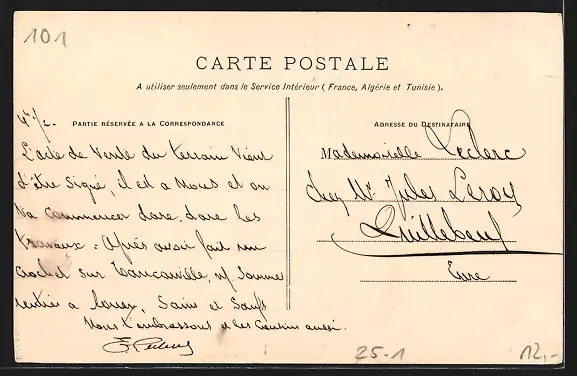 101
CARTE POSTALE
A utiliser seulement dans le Service Intérieur ( France, Algérie et Tunisie ).
PARTIE RÉSERVÉE A LA CORRESPONDANCE
ADRESSE DU DESTINATAIRE
L'acte de Vente du terrain Vient
d'être Signé, il est a Nous et on
Va commencer dare, dare les
travaux. Après avoir fait un
crochet sur Tancarville, n/ sommes
rentrés a Sains et Saufs
Nous t'embrassons et les Cousins aussi.
Mademoiselle Leclerc
chez Mr Jules Leroy
Quillebeuf
Eure
25-1
12,-